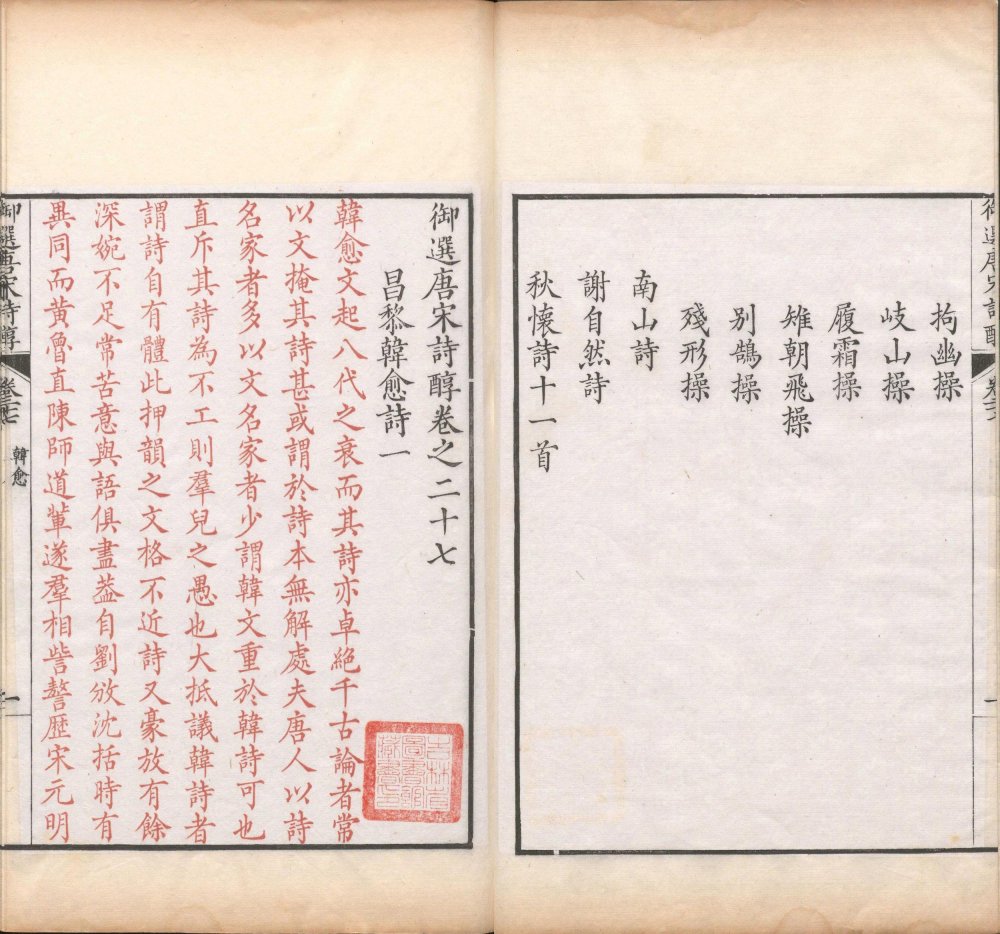 拘幽操
岐山操
履霜操
雉朝飛操
別鵠操
殘形操
南山詩
謝自然詩
秋懷詩十一首
御選唐宋詩醇卷之二十七
昌黎韓愈詩一
韓愈文起八代之衰而其詩亦卓絶千古論者常
以文掩其詩甚或謂於詩本無解處夫唐人以詩
名家者多以文名家者少謂韓文重於韓詩可也
直斥其詩為不工則羣兒之愚也大抵議韓詩者
謂詩自有體此押韻之文格不近詩又豪放有餘
深婉不足常苦意與語俱盡葢自劉攽沈括時有
異同而黃魯直陳師道軰遂羣相訾謷歴宋元明
御選唐宋詩醇
卷二十七
韓愈
一
吉林省圖書館藏書之章